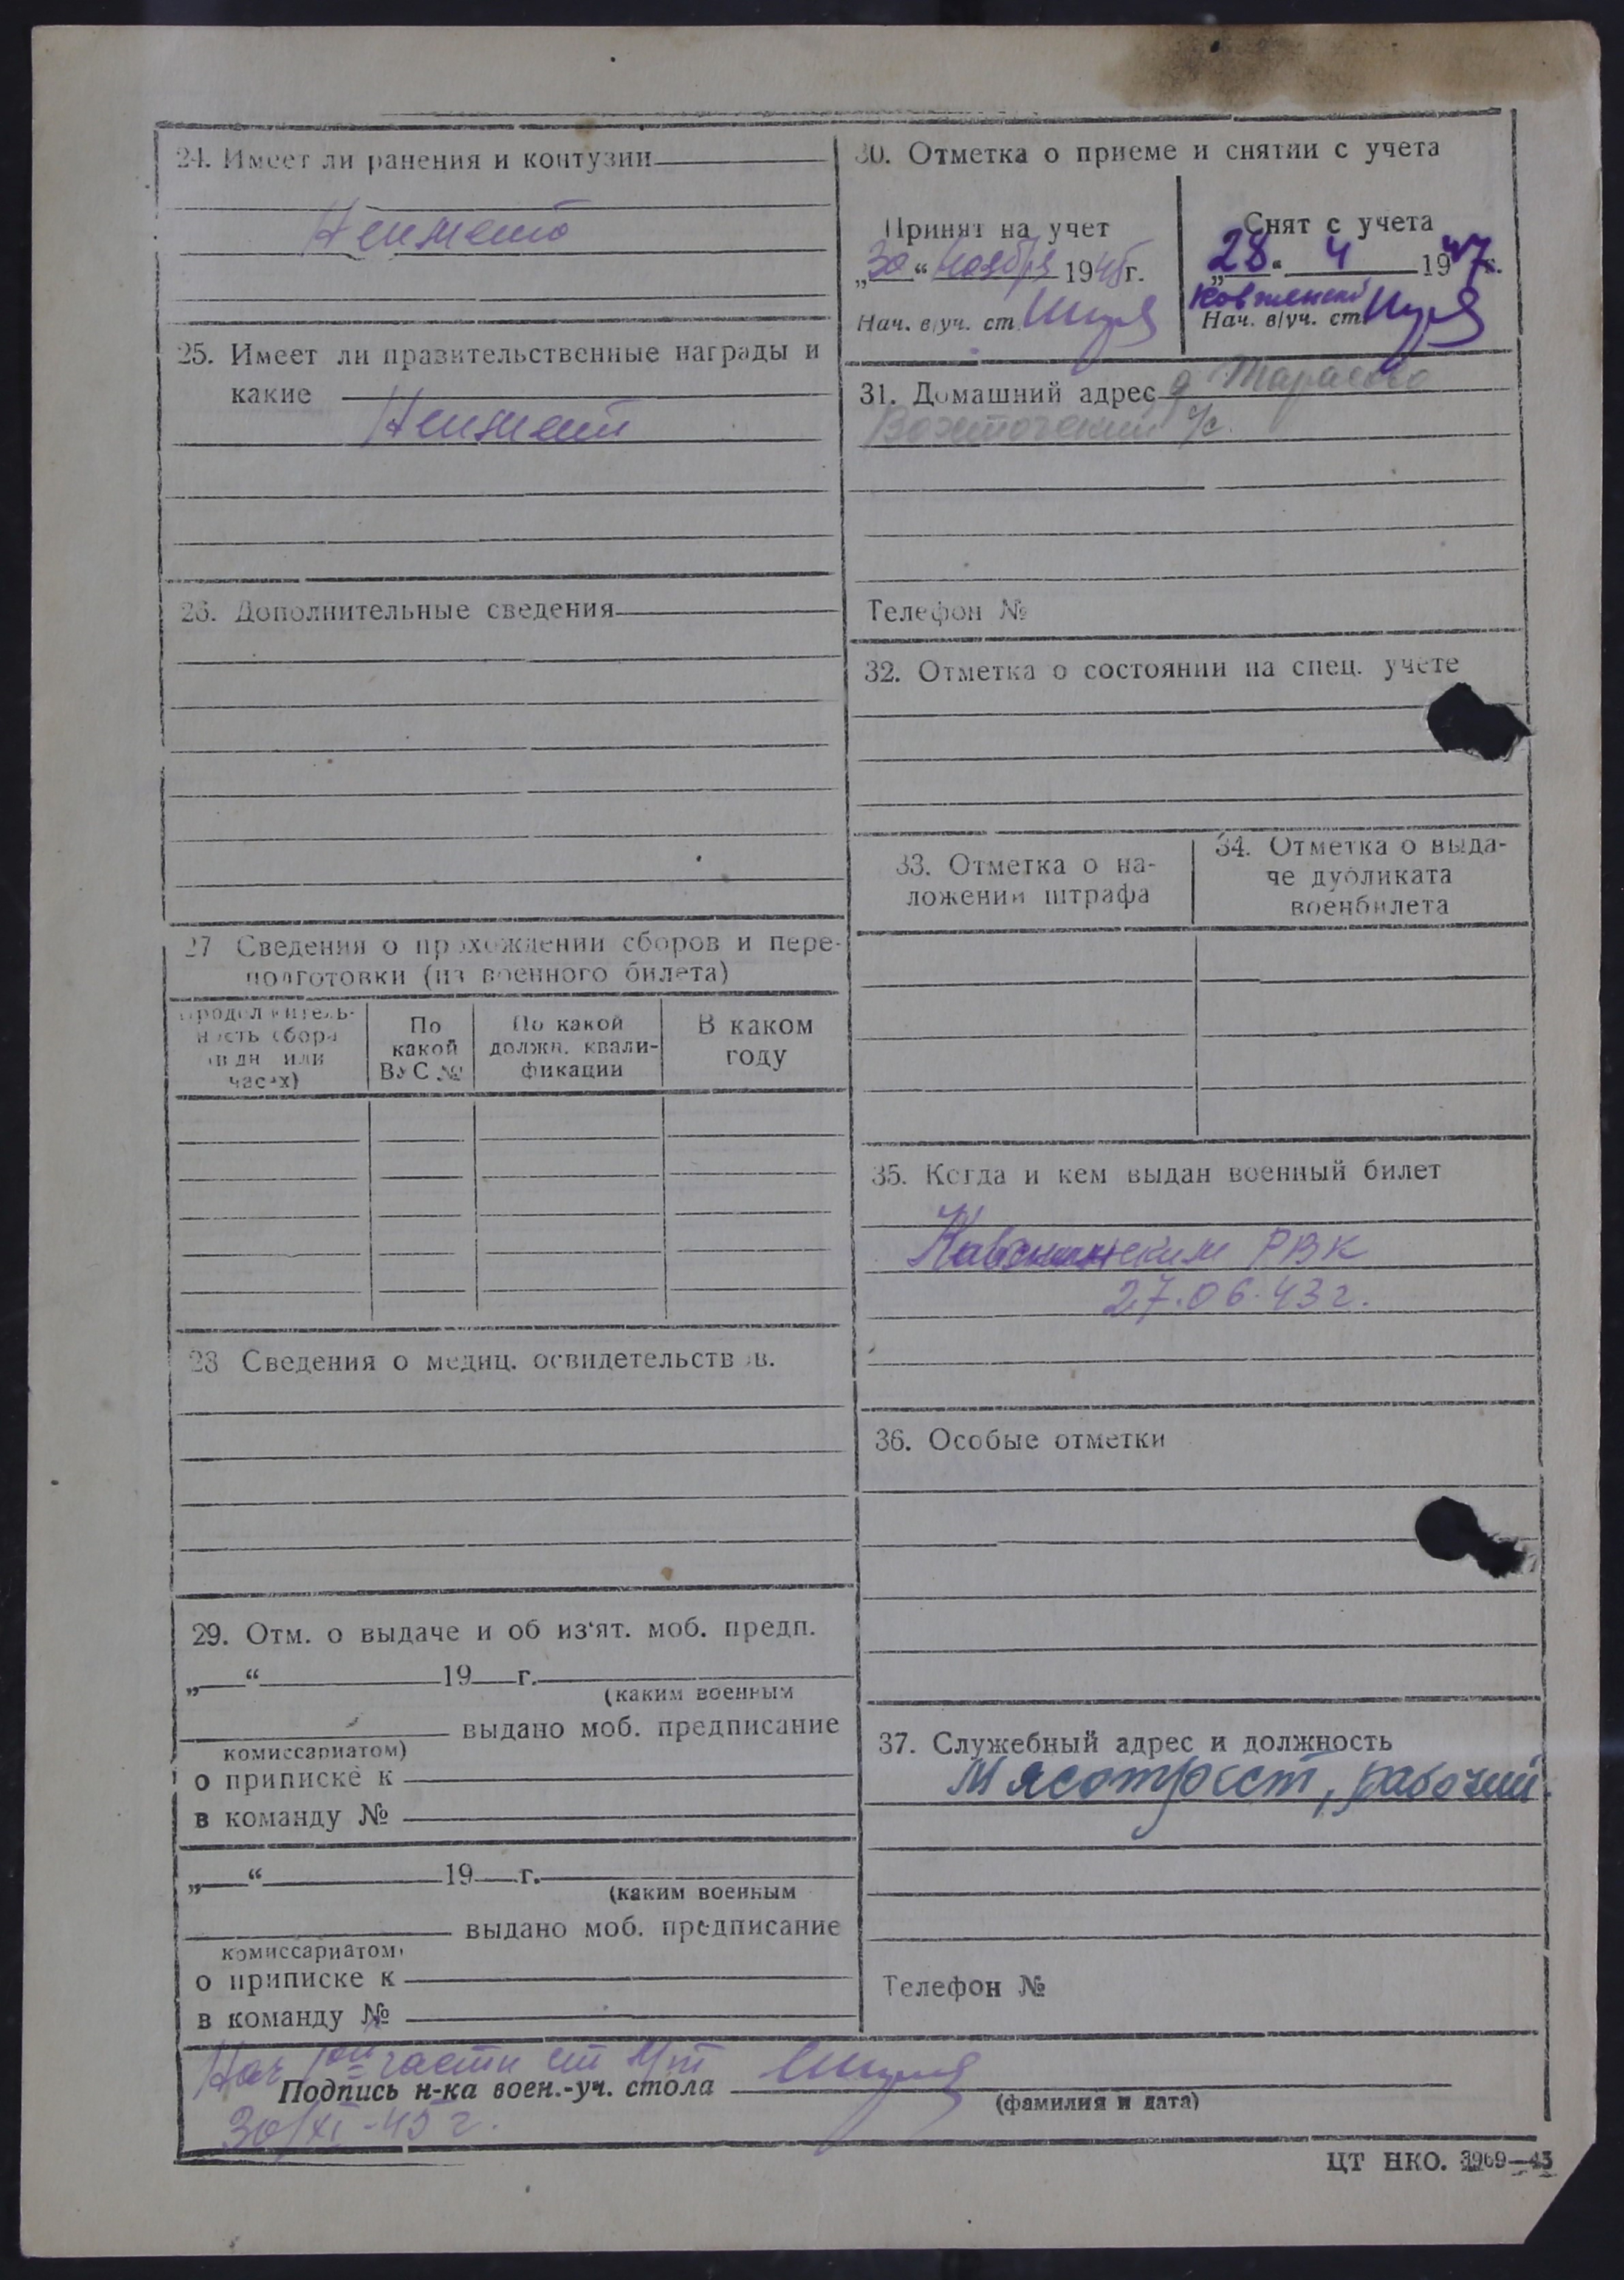 24. Имеет ли ранения и контузии
Не имеет
25. Имеет ли правительственные награды и
какие
Не имеет
26. Дополнительные сведения
27 Сведения о прохождении сборов и пере-
подготовки (из военного билета)
Продолжитель-
ность сбора
(в дн или
часах)
По
какой
ВУС №
По какой
должн. квали-
фикации
В каком
году
28 Сведения о медиц. освидетельствов.
29. Отм. о выдаче и об из‘ят. моб. предп.
„ “ 19 г.
(каким военным
выдано моб. предписание
комиссариатом)
о приписке к
в команду №
„ “ 19 г.
(каким военным
выдано моб. предписание
комиссариатом)
о приписке к
в команду №
30. Отметка о приеме и снятии с учета
Принят на учет
„30“ ноября 1945г.
Нач. в/уч. ст.
Снят с учета
„28“ 4 1947г.
Нач. в/уч. ст.
31. Домашний адрес д Тарасово
с/с
Телефон №
32. Отметка о состоянии на спец. учете
33. Отметка о на-
ложении штрафа
34. Отметка о выда-
че дубликата
военбилета
35. Когда и кем выдан военный билет
РВК
27.06.43г.
36. Особые отметки
37. Служебный адрес и должность
Мясотрест, рабочий.
Телефон №
Нач части
Подпись н-ка воен.-уч. стола
(фамилия и дата)
30/XI-45г.
ЦТ НКО. 3969—45